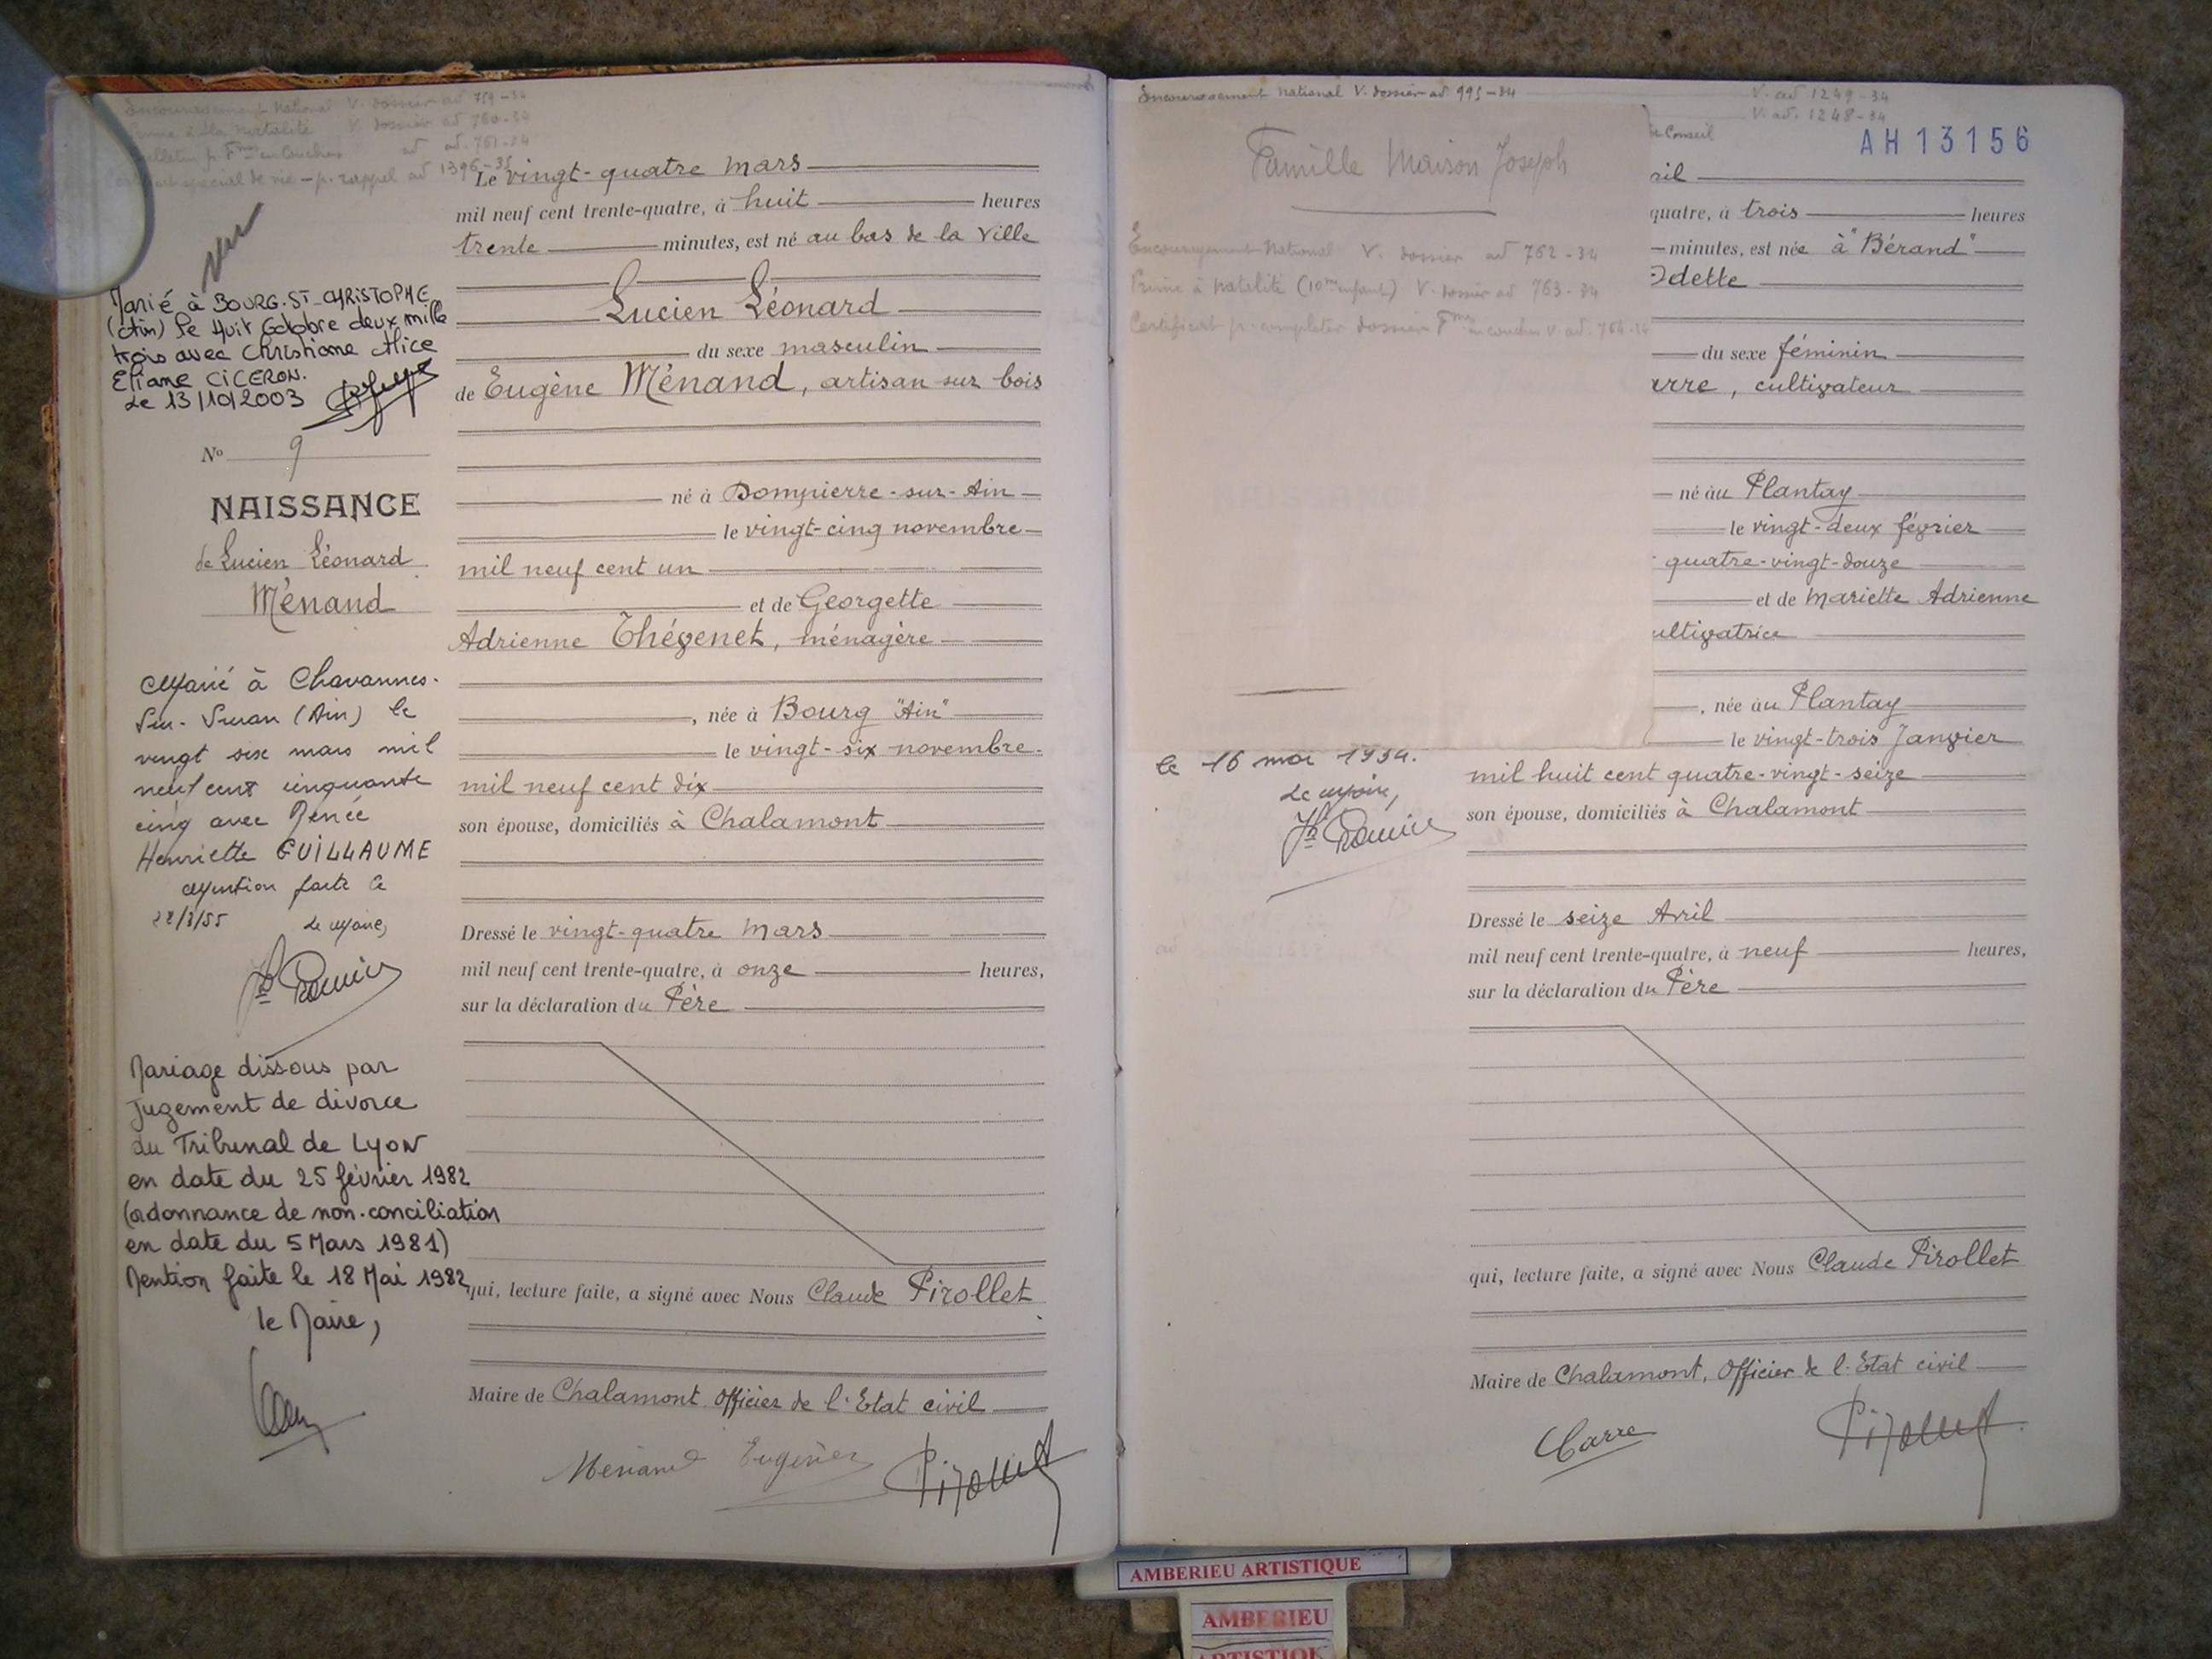 Encouragement National V. dossier ad 759-34
Prime à la Natalité V. dossier ad 760-34
ad ad. 761-34
spécial de vie - p. rappel ad 1396-35
Le vingt-quatre Mars
mil neuf cent trente-quatre, à huit heures
trente minutes, est né au bas de la Ville
Lucien Léonard
du sexe masculin
de Eugène Ménand, artisan sur bois
né à Dompierre-sur-Ain
le vingt-cinq novembre
mil neuf cent un
et de Georgette
Adrienne Thévenet, ménagère
, née à Bourg "Ain"
le vingt-six novembre
mil neuf cent dix
son épouse, domiciliés à Chalamont
Dressé le vingt-quatre Mars
mil neuf cent trente-quatre, à onze heures,
sur la déclaration du Père
qui, lecture faite, a signé avec Nous Claude Pirollet
Maire de Chalamont Officier de l'Etat civil
Menand Eugène Pirollet
vu
Marié à BOURG-ST-CHRISTOPHE
(Ain) le Huit Octobre deux mille
trois avec Christiane Alice
Eliane CICERON.
Le 13/10/2003
No 9
NAISSANCE
de Lucien Léonard
Ménand
Marié à Chavannes-
sur-Suran (Ain) le
vingt six mars mil
neuf cent cinquante
cinq avec Renée
Henriette GUILLAUME
Mention faite le
28/3/55 Le Maire,
Mariage dissous par
Jugement de divorce
du Tribunal de Lyon
en date du 25 février 1982
(ordonnance de non-conciliation
en date du 5 Mars 1981)
Mention faite le 18 Mai 1982
le Maire,
Encouragement National V. dossier ad 995-34
Famille Maison Joseph
Encouragement National V. dossier ad 762-34
Prime à Natalité (10me enfant) V. dossier ad 763-34
Certificat pr. compléter dossier Fmes en couches v. ad. 764-34
le 16 mai 1934.
Le Maire,
V. ad 1249-34
V. ad. 1248-34
Conseil
AH13156
ril
quatre, à trois heures
minutes, est née à "Bérand"
Odette
du sexe féminin
rre, cultivateur
né au Plantay
le vingt-deux février
quatre-vingt-douze
et de Mariette Adrienne
ultivatrice
, née au Plantay
le vingt-trois Janvier
mil huit cent quatre-vingt-seize
son épouse, domiciliés à Chalamont
Dressé le seize Avril
mil neuf cent trente-quatre, à neuf heures,
sur la déclaration du Père
qui, lecture faite, a signé avec Nous Claude Pirollet
Maire de Chalamont, Officier de l'Etat civil
Carre Pirollet
AMBERIEU ARTISTIQUE
AMBERIEU
ARTISTIQ